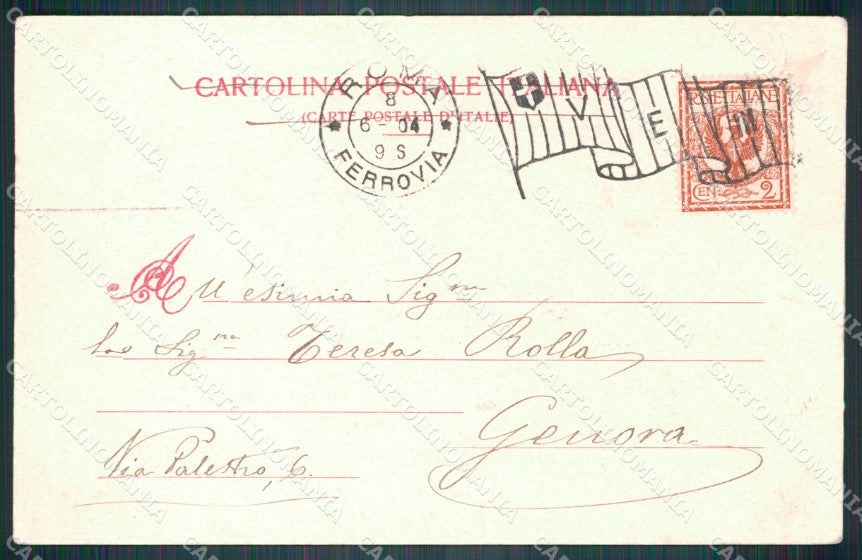 CARTOLINA POSTALE ITALIANA
(CARTE POSTALE D'ITALIE)
ROMA
8
6 04
9 S
FERROVIA
V E III
POSTE ITALIANE
CEN 2
A
Sig.na
Sig.na Teresa Rolla
Genova
Via Palestro, 6.
CARTOLINOMANIA